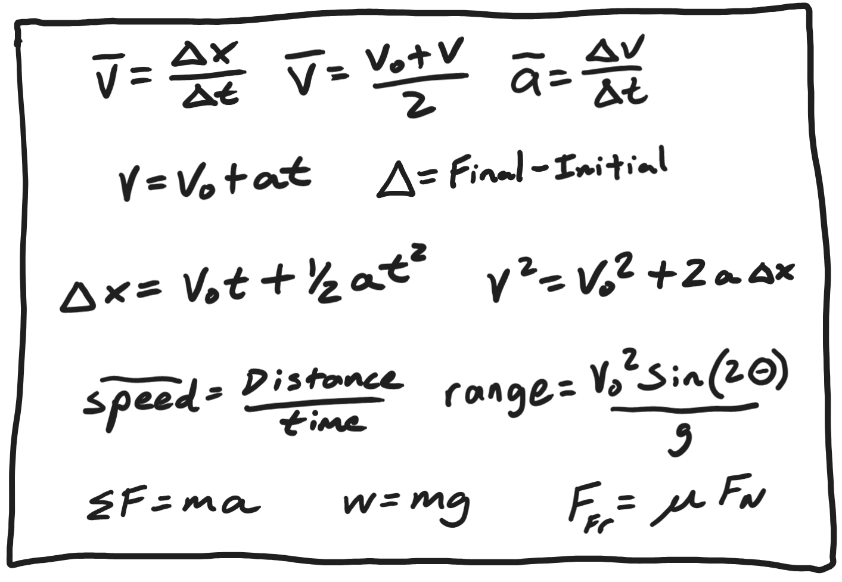 v̅ = Δx/Δt   v̅ = (v₀+v)/2   a̅ = Δv/Δt
v = v₀ + at   Δ = Final - Initial
Δx = v₀t + ½at²   v² = v₀² + 2aΔx
s̅p̅e̅e̅d̅ = Distance/time   range = v₀²sin(2θ)/g
ΣF = ma   w = mg   F_Fr = μF_N